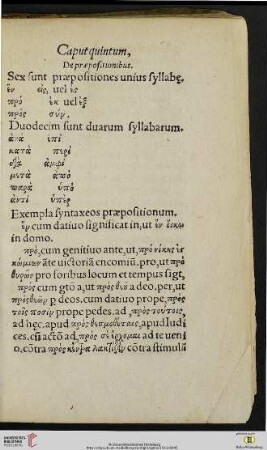 Caput quintum,
De præpositionibus.
Sex sunt præpositiones unius syllabę.
ἐν εἰς, uel ἐς
πρό ἐκ uel ἐξ
πρός σύν.
Duodecim sunt duarum syllabarum.
ἀνα ἐπί
κατά περί
διά ἀμφί
μετά ἀπό
παρά ὑπό
ἀντί ὑπέρ
Exempla syntaxeos præpositionum.
ἐν cum datiuo significat in, ut ἐν οἴκῳ
in domo.
πρό, cum genitiuo ante, ut, πρό νίκης ἐγ
κώμιον ãte uictoriã encomiũ, pro, ut πρό
θυρῶν pro foribus locum et tempus sigt,
πρός cum gtõ a, ut πρός θεοῦ a deo, per, ut
πρός θεῶν p deos, cum datiuo prope, πρός
τοῖς ποσίν prope pedes, ad, πρός τούτοις,
ad hęc, apud πρός θεσμοθέταις, apud Iudi
ces, cũ acctõ ad, πρός σέ ἔρχομαι ad te ueni
o, cõtra πρός κέντρα λακτίζειν cõtra stimulũ